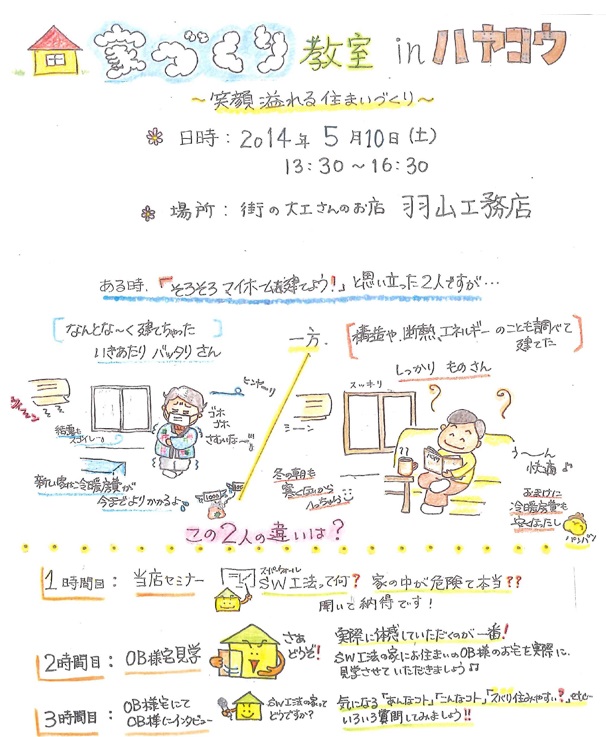 家づくり 教室 in ハヤコウ
～笑顔溢れる住まいづくり～
日時： 2014年 5月10日（土）
13:30～16:30
場所： 街の大工さんのお店 羽山工務店
ある時、「そろそろマイホームを建てよう！」と思い立った2人ですが…
なんとな～く建てちゃった
いきあたりバッタリさん
一方、
構造や、断熱、エネルギーのことも調べて
建てた
しっかりものさん
ゴホ
ゴホ
さむいな～
結露も
スゴイし～
新しい家は冷暖房費が
今までよりかかるよ
スッキリ
冬の朝も
寒くないから
う～ん
快適♪
おまけに
冷暖房費も
安くなったし
この2人の違いは？
1時間目： 当店セミナー
スーパーウォール
SW工法って何？ 家の中が危険て本当？？
聞いて納得です！
2時間目： OB様宅見学
さあ
どうぞ！
実際に体感していただくのが一番！
SW工法の家にお住まいのOB様のお宅を実際に、
見学させていただきましょう♫
3時間目： OB様宅にて
OB様にインタビュー
SW工法の家って
どうですか？
気になる「あんなコト」「こんなコト」「ズバリ住みやすい？」etc…
いろいろ質問してみましょう！！